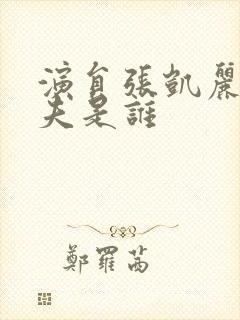 演員張凱麗
夫是誰
鄭羅茜